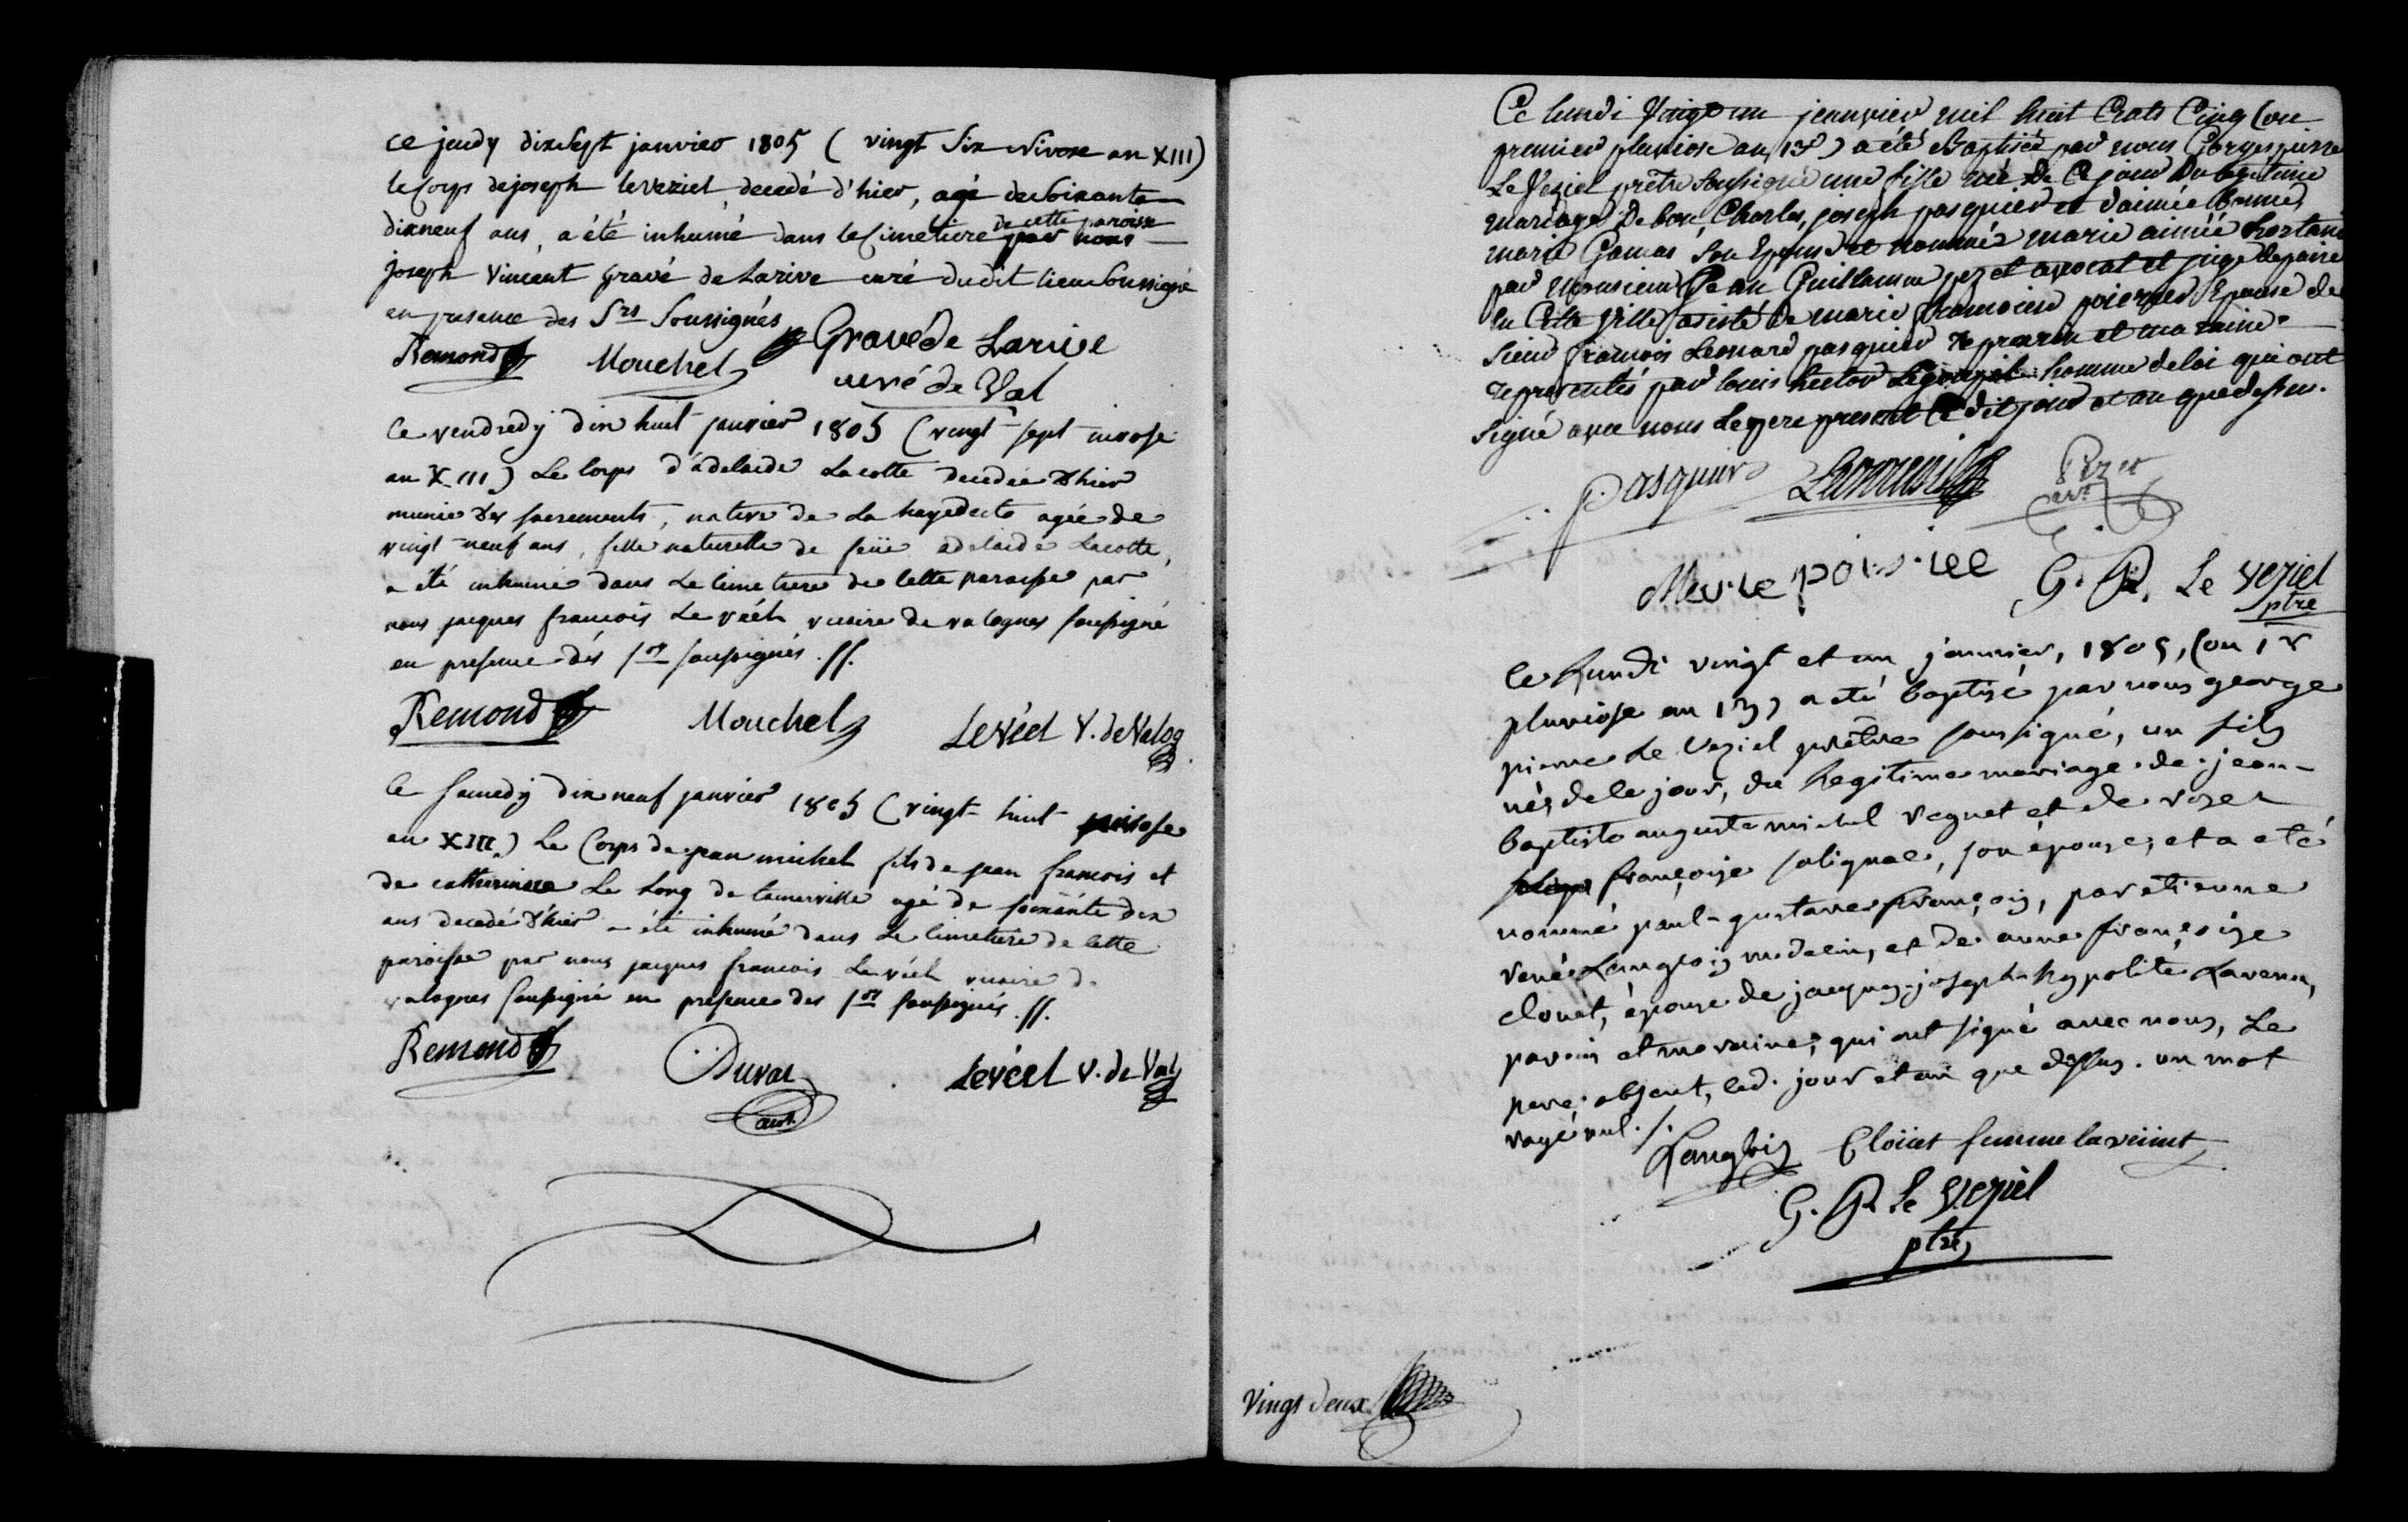 ce jeudy dixsept janvier 1805 ( vingt six Nivose an XIII)
le corps de joseph leveziel decedé d'hier, agé de soixante
dixneuf ans, a été inhumé dans le Cimetiere de cette paroisse par nous
joseph Vincent Gravé de Larive curé dudit lieu soussigné
en presence des Srs Soussignés
Remond Mouchel Gravé de Larive
curé de Val
Ce vendredy dix huit janvier 1805 (vingt-sept nivose
an XIII) Le Corps d'adelaide Lacotte decedée d'hier
munie des sacrements, native de La hayedecto agée de
vingt-neuf ans, fille naturelle de feüe adelaide Lacotte,
a été inhumé dans Le Cimetiere de Cette paroisse par
nous jacques francois Levéel vicaire de valognes soussigné
en presence des srs soussignés .//.
Remond Mouchel Levéel V. de Valog
Ce samedy dix neuf janvier 1805 (vingt-huit nivose
an XIII) Le Corps de jean michel fils de jean francois et
de catherinne Le Long de tamerville agé de soixante dix
ans decedé d'hier a été inhumé dans Le Cimetiere de Cette
paroisse par nous jacques francois Levéel vicaire de
valognes soussigné en presence des srs soussignés .//.
Remond Duval Levéel V. de Val
aust.
Ce lundi Vingt un jeanvier mil huit Cents Cinq (ou
premier pluviose an 13e) a été Baptisée par nous Gorges pierre
Le Veziel prêtre soussigné une fille née de Ce jour Du legitime
mariage De bon, Charles, joseph pasquier et daimée bonne
marie Gamas son Epouse et nommée marie aimée hortanse
par Monsieur Jean Guillaume pezet avocat et juge depaire
en Cette Ville assisté de marie francoise poierier Epouse de
sieur francois Leonard pasquier parrein et maraine
representés par louis hector Legoupil homme de loi qui ont
signé avec nous Le pere present Ce dit jour et an que dessus.
pasquier Pezet
avt
G. P. Le Veziel
ptre
Ce Lundi vingt et un janvier, 1805, (ou 1er
pluviose an 13) a été baptisé par nous george
pierre Le Veziel prêtre soussigné, un fils
né de ce jour, du Legitime mariage de jean-
baptiste auguste michel Vegnet et de rose
françoise salignac, son épouse; et a été
nommé paul-gustave françois, par etienne
rené Langlois medecin, et de anne françoise
clouet, épouse de jacques-joseph-hypolite Lavenu,
parein et maraine; qui ont signé avec nous, Le
pere absent, led. jour et an que dessus. un mot
rayé nul ./.
Langlois Cloüet femme
G. P. Le Veziel
ptre
Vingt deux